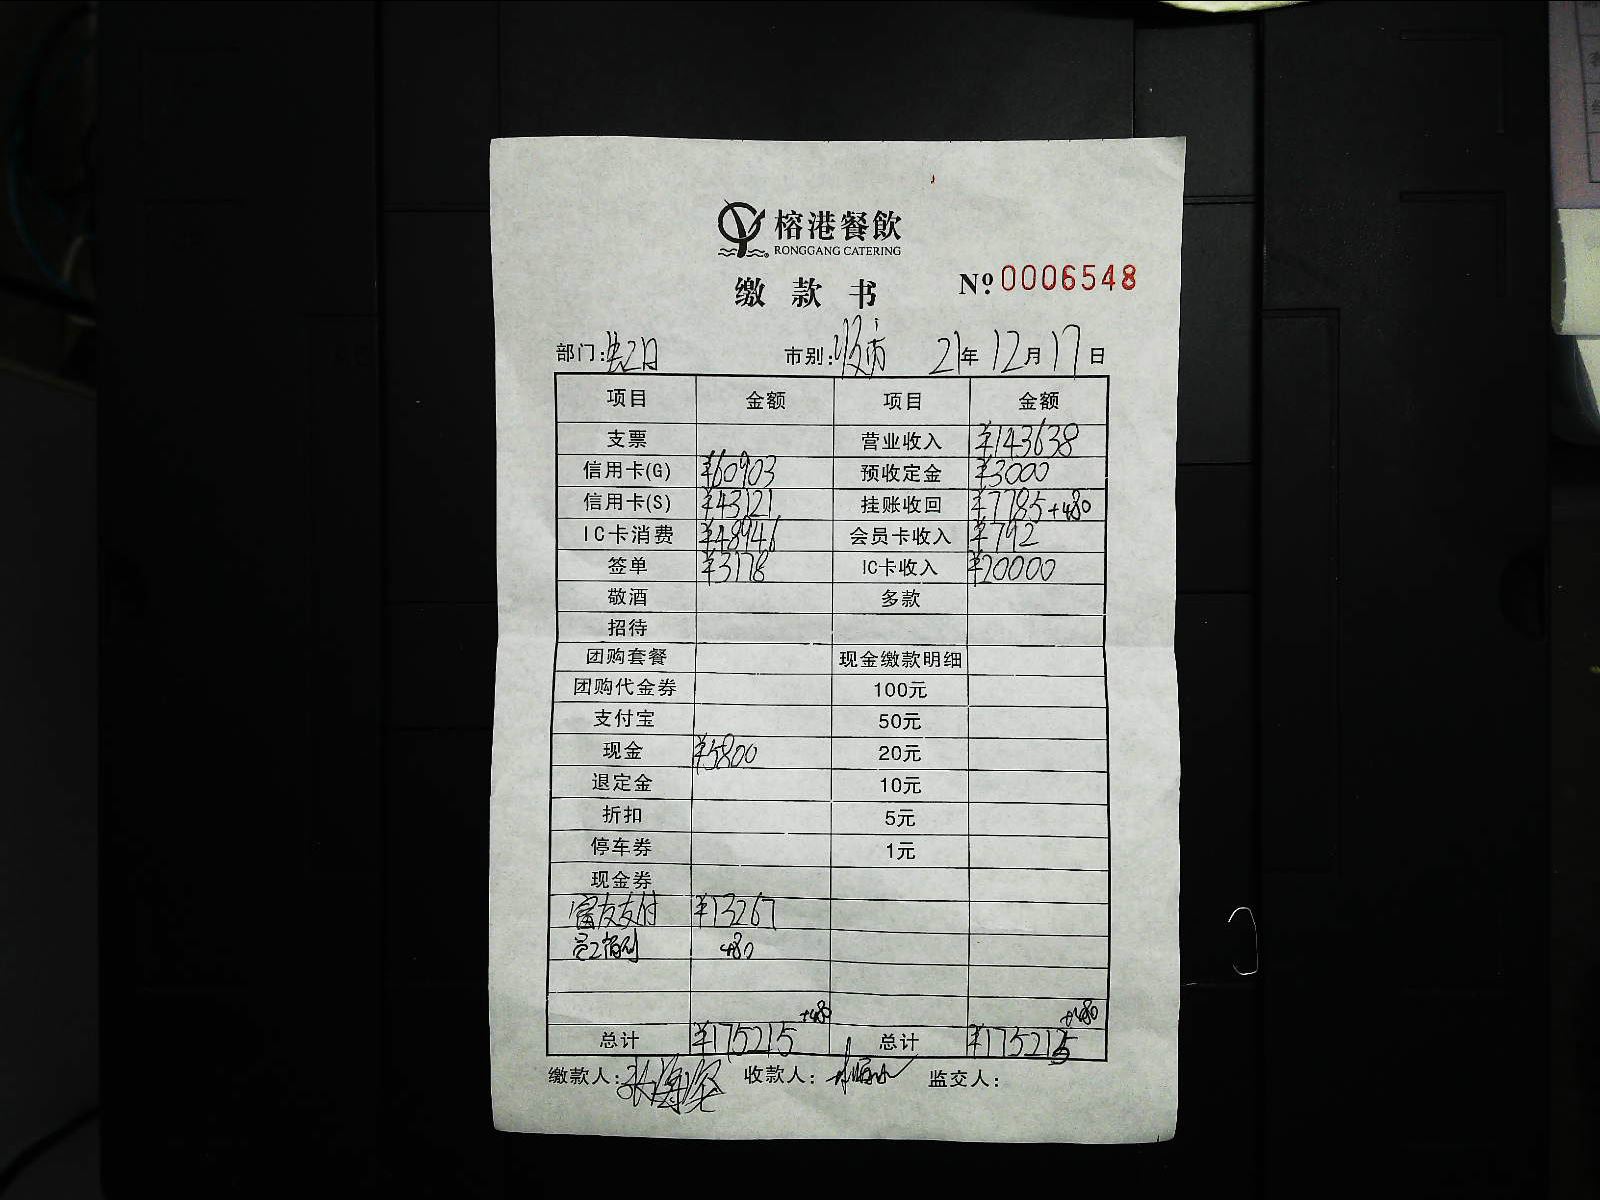 榕港餐飲
RONGGANG CATERING
缴款书
Nº 0006548
部门: 市别: 21年12月17日
项目 金额 项目 金额
支票 营业收入 ¥143638
信用卡(G) ¥60903 预收定金 ¥3000
信用卡(S) ¥43121 挂账收回 ¥7785+480
IC卡消费 ¥48946 会员卡收入 ¥792
签单 ¥3178 IC卡收入 ¥20000
敬酒 多款
招待
团购套餐 现金缴款明细
团购代金券 100元
支付宝 50元
现金 ¥5800 20元
退定金 10元
折扣 5元
停车券 1元
现金券
富友支付 ¥13267
员工 480
+480 +480
总计 ¥175215 总计 ¥175215
缴款人: 收款人: 监交人: